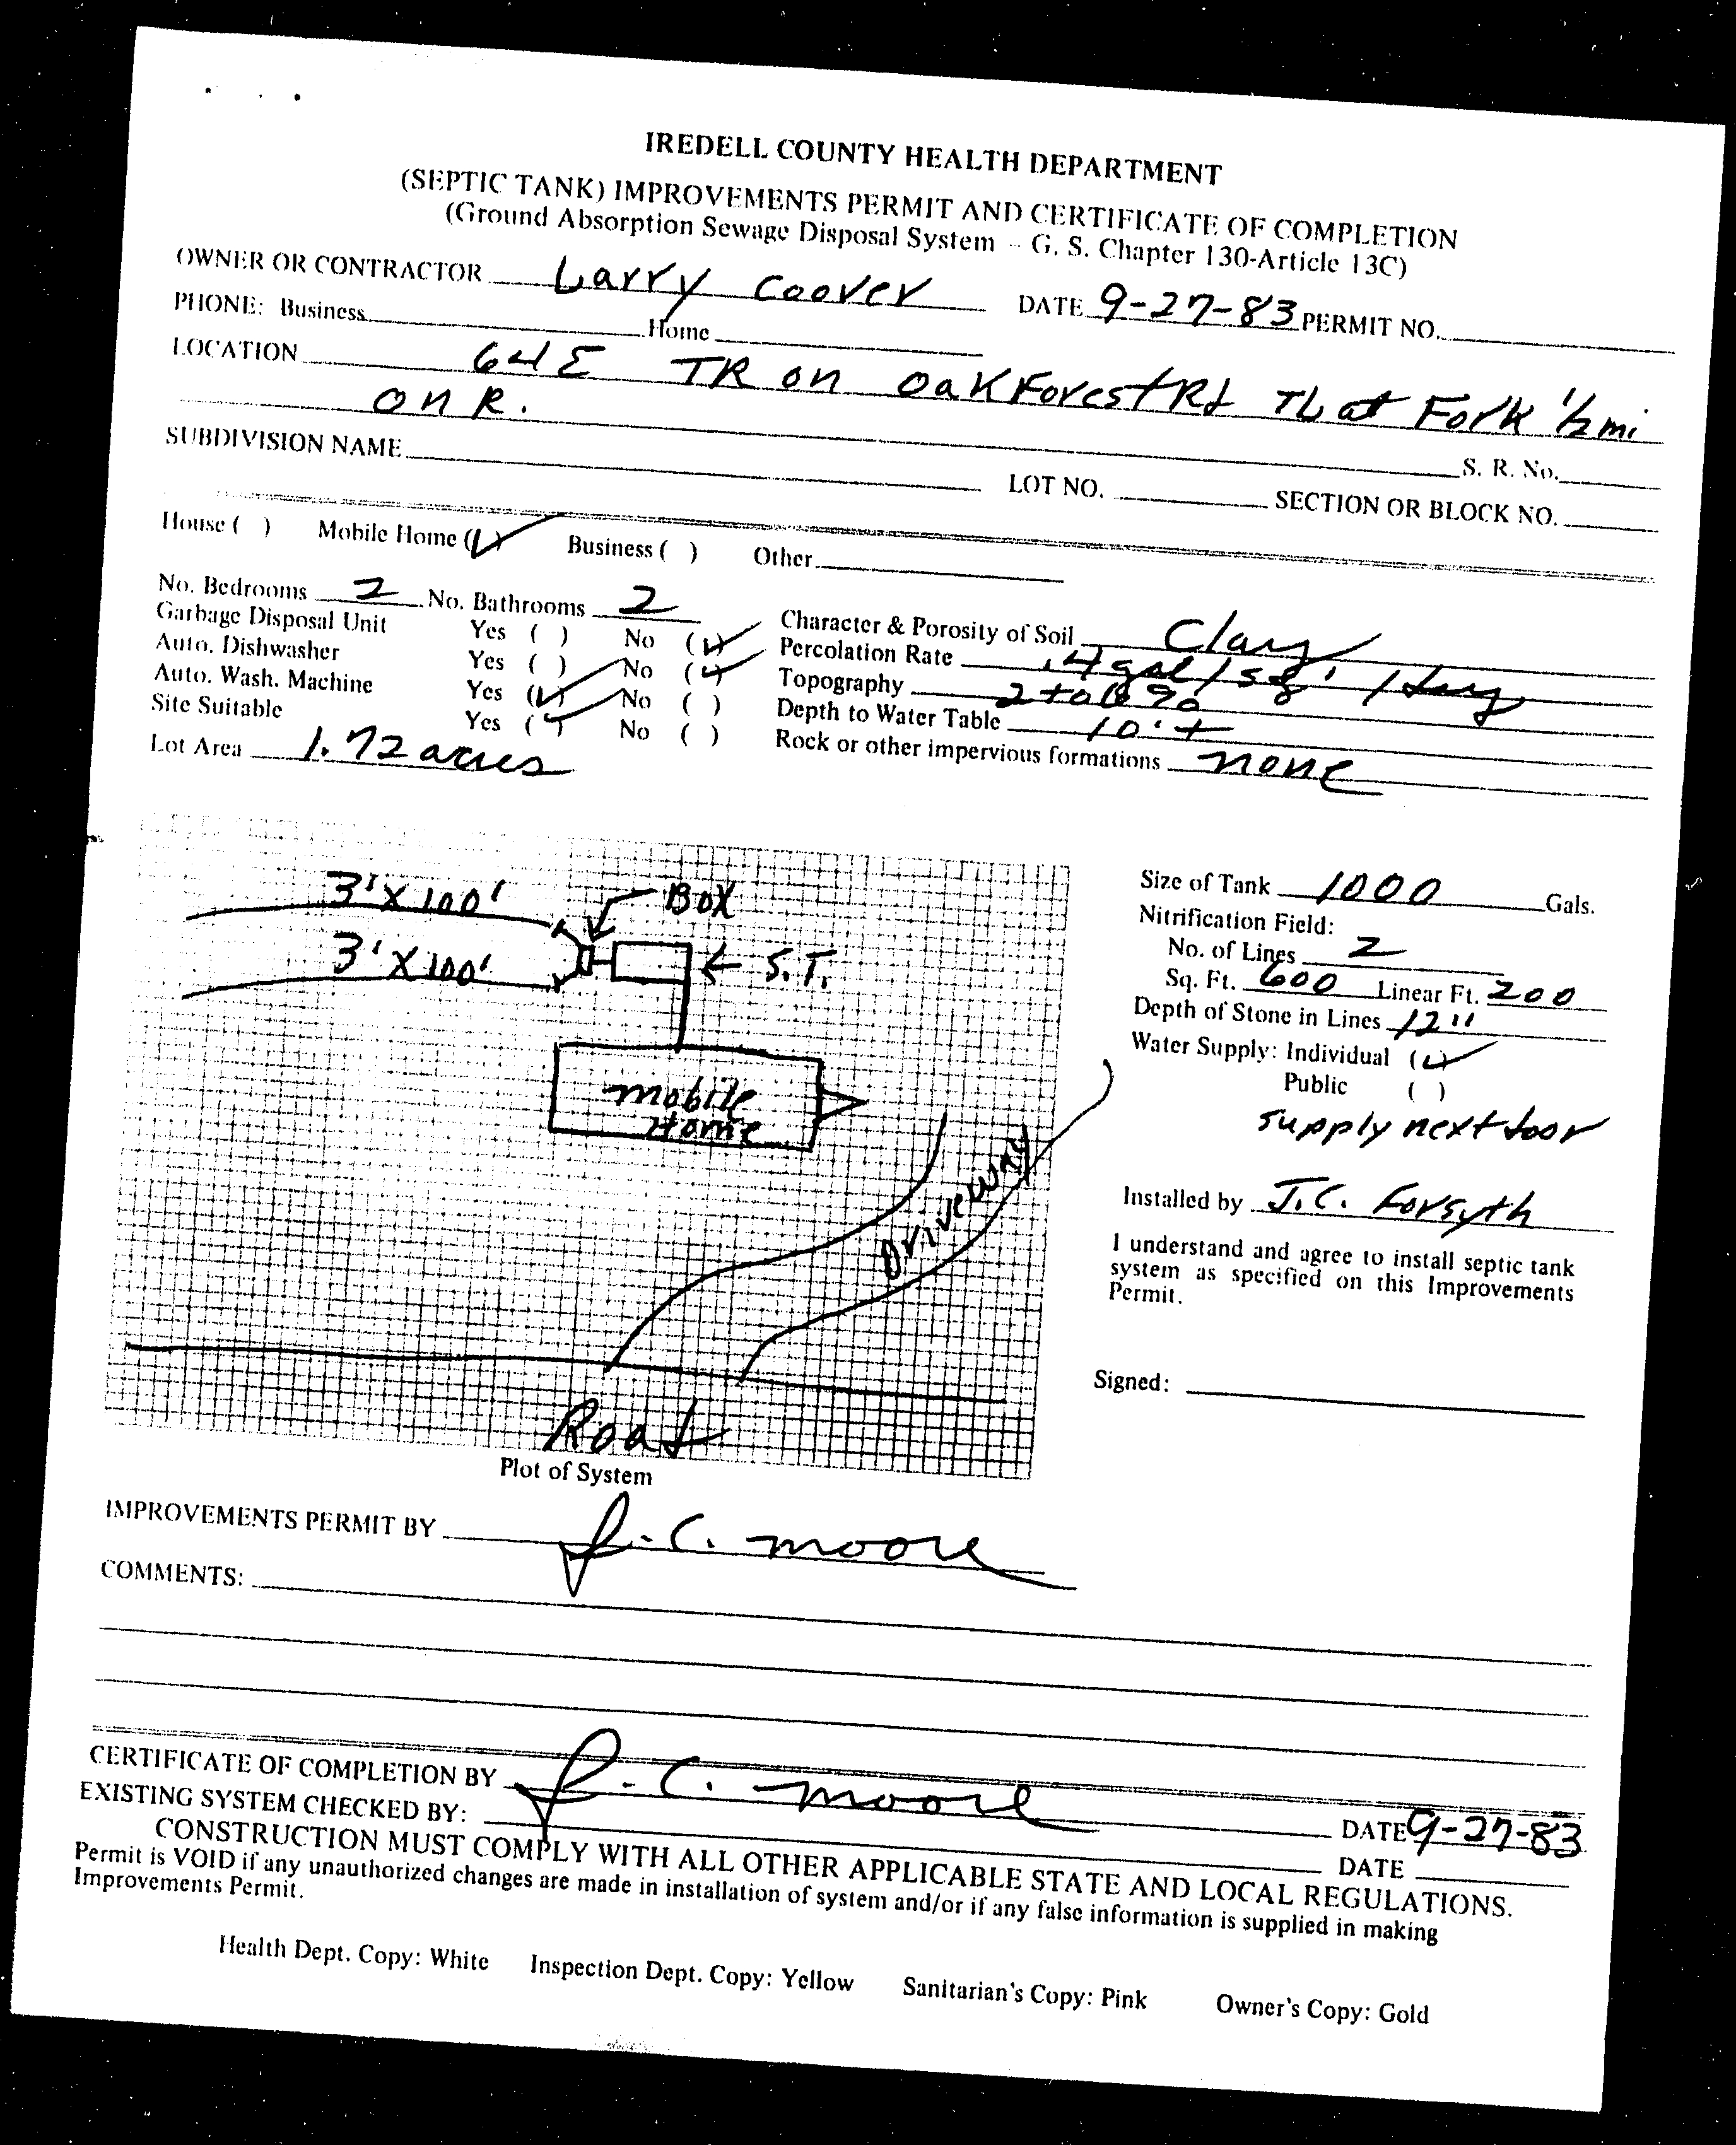 IREDELL COUNTY HEALTH DEPARTMENT
(SEPTIC TANK) IMPROVEMENTS PERMIT AND CERTIFICATE OF COMPLETION
(Ground Absorption Sewage Disposal System - G. S. Chapter 130-Article 13C)
OWNER OR CONTRACTOR Larry Coover DATE 9-27-83 PERMIT NO.
PHONE: Business Home
LOCATION 64 E TR on Oak Forest Rd TL at Fork 1/2 mi
on R.
S. R. No.
SUBDIVISION NAME LOT NO. SECTION OR BLOCK NO.
House ( ) Mobile Home (✓) Business ( ) Other
No. Bedrooms 2 No. Bathrooms 2
Garbage Disposal Unit Yes ( ) No (✓)
Auto. Dishwasher Yes ( ) No (✓)
Auto. Wash. Machine Yes (✓) No ( )
Site Suitable Yes (✓) No ( )
Lot Area 1.72 acres
Character & Porosity of Soil Clay
Percolation Rate .4 gal / sq' / day
Topography 2 to 6%
Depth to Water Table 10' +
Rock or other impervious formations none
3' X 100'
Box
3' X 100'
← S.T.
mobile
Home
Driveway
Road
Plot of System
Size of Tank 1000 Gals.
Nitrification Field:
No. of Lines 2
Sq. Ft. 600 Linear Ft. 200
Depth of Stone in Lines 12"
Water Supply: Individual (✓)
Public ( )
supply next door
Installed by J.C. Forsyth
I understand and agree to install septic tank
system as specified on this Improvements
Permit.
Signed:
IMPROVEMENTS PERMIT BY J.C. Moore
COMMENTS:
CERTIFICATE OF COMPLETION BY J.C. Moore DATE 9-27-83
EXISTING SYSTEM CHECKED BY: DATE
CONSTRUCTION MUST COMPLY WITH ALL OTHER APPLICABLE STATE AND LOCAL REGULATIONS.
Permit is VOID if any unauthorized changes are made in installation of system and/or if any false information is supplied in making
Improvements Permit.
Health Dept. Copy: White Inspection Dept. Copy: Yellow Sanitarian's Copy: Pink Owner's Copy: Gold